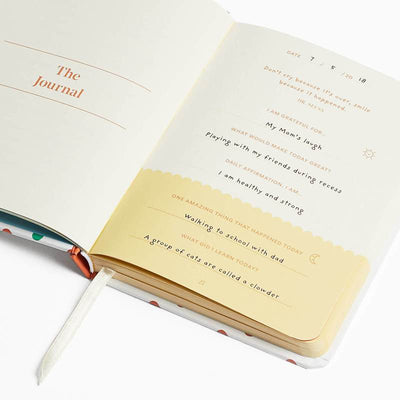 The
Journal
DATE 7 / 5 /20 18
Don't cry because it's over, smile
because it happened.
I AM GRATEFUL FOR...
My Mom's laugh
WHAT WOULD MAKE TODAY GREAT?
Playing with my friends during recess
DAILY AFFIRMATION, I AM...
I am healthy and strong
ONE AMAZING THING THAT HAPPENED TODAY
Walking to school with dad
WHAT DID I LEARN TODAY?
A group of cats are called a clowder